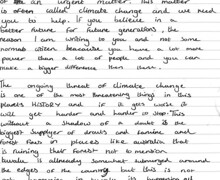 of an urgent matter. This matter
is often called climate change and we need
you to help. If you believe in a
better future for future generations, the
reason I am writing to you and not some
normal citizen beacause you have a lot more
power than a lot of people and you can
make a bigger difference then
The ongoing threat of climate change,
is one of the most threatening things in this
planets HISTORY and if it gets worse it
will get harder and harder to stop. This
without a shadow of a doubt is the
biggest supplyer of droughts and famine and
forest fires in places like australia that
is ruining their forest not to mention
tuvalu is already somewhat submerged around
the edges of the country but this is not